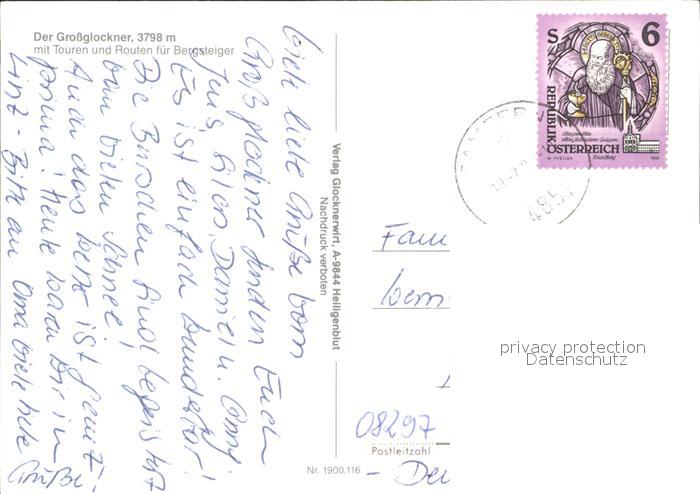 Der Großglockner, 3798 m
mit Touren und Routen für Bergsteiger
Viele liebe Grüße vom
Großglockner senden Euch
Jens, Daniel u. Omi.
Es ist einfach wunderbar!
Die Burschen sind begeistert
vom vielen Schnee!
Auch das Wetter ist
prima! Heute waren wir in
Linz - Bitte an Oma viele liebe
Grüße!
Verlag Glocknerwirt, A-9844 Heiligenblut
Nachdruck verboten
S 6
REPUBLIK
ÖSTERREICH
4851
Fam
privacy protection
Datenschutz
08297
Postleitzahl
Nr. 1900.116